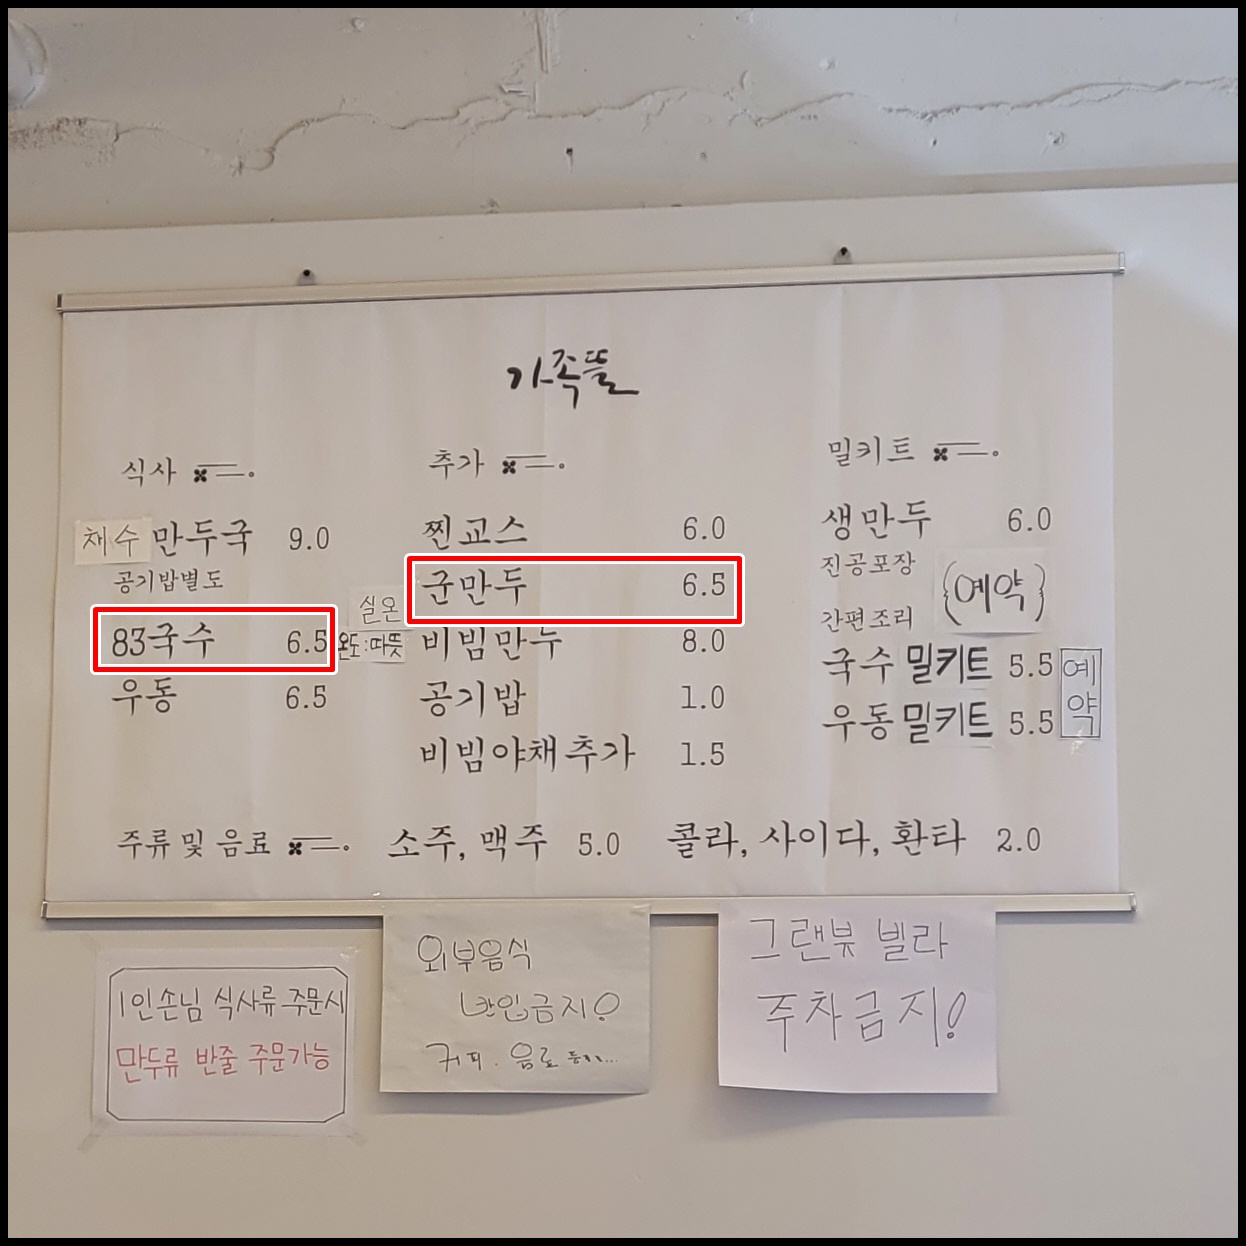 가족뜰
식사
채수 만두국 9.0
공기밥별도
83국수 6.5
실온
온도:따뜻
우동 6.5
추가
찐교스 6.0
군만두 6.5
비빔만두 8.0
공기밥 1.0
비빔야채추가 1.5
밀키트
생만두 6.0
진공포장
간편조리
(예약)
국수 밀키트 5.5 예약
우동 밀키트 5.5
주류 및 음료 소주, 맥주 5.0 콜라, 사이다, 환타 2.0
1인손님 식사류 주문시
만두류 반줄 주문가능
외부음식
반입금지!
커피. 음료 등기...
그랜뷰 빌라
주차금지!